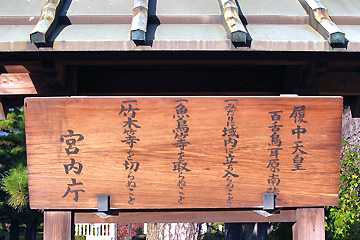 履中天皇
百舌鳥耳原南陵
一、みだりに域内に立ち入らぬこと
一、魚鳥等を取らぬこと
一、竹木等を切らぬこと
宮内庁